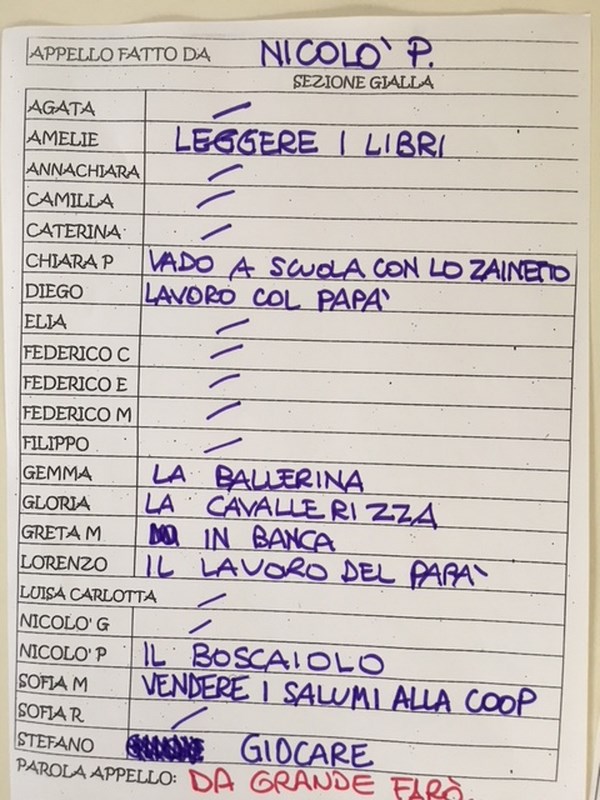 APPELLO FATTO DA NICOLO' P.
SEZIONE GIALLA
AGATA /
AMELIE LEGGERE I LIBRI
ANNACHIARA /
CAMILLA /
CATERINA /
CHIARA P VADO A SCUOLA CON LO ZAINETTO
DIEGO LAVORO COL PAPA'
ELIA /
FEDERICO C /
FEDERICO E /
FEDERICO M /
FILIPPO /
GEMMA LA BALLERINA
GLORIA LA CAVALLERIZZA
GRETA M IN BANCA
LORENZO IL LAVORO DEL PAPA'
LUISA CARLOTTA /
NICOLO' G /
NICOLO' P IL BOSCAIOLO
SOFIA M VENDERE I SALUMI ALLA COOP
SOFIA R /
STEFANO GIOCARE
PAROLA APPELLO: DA GRANDE FARÒ.